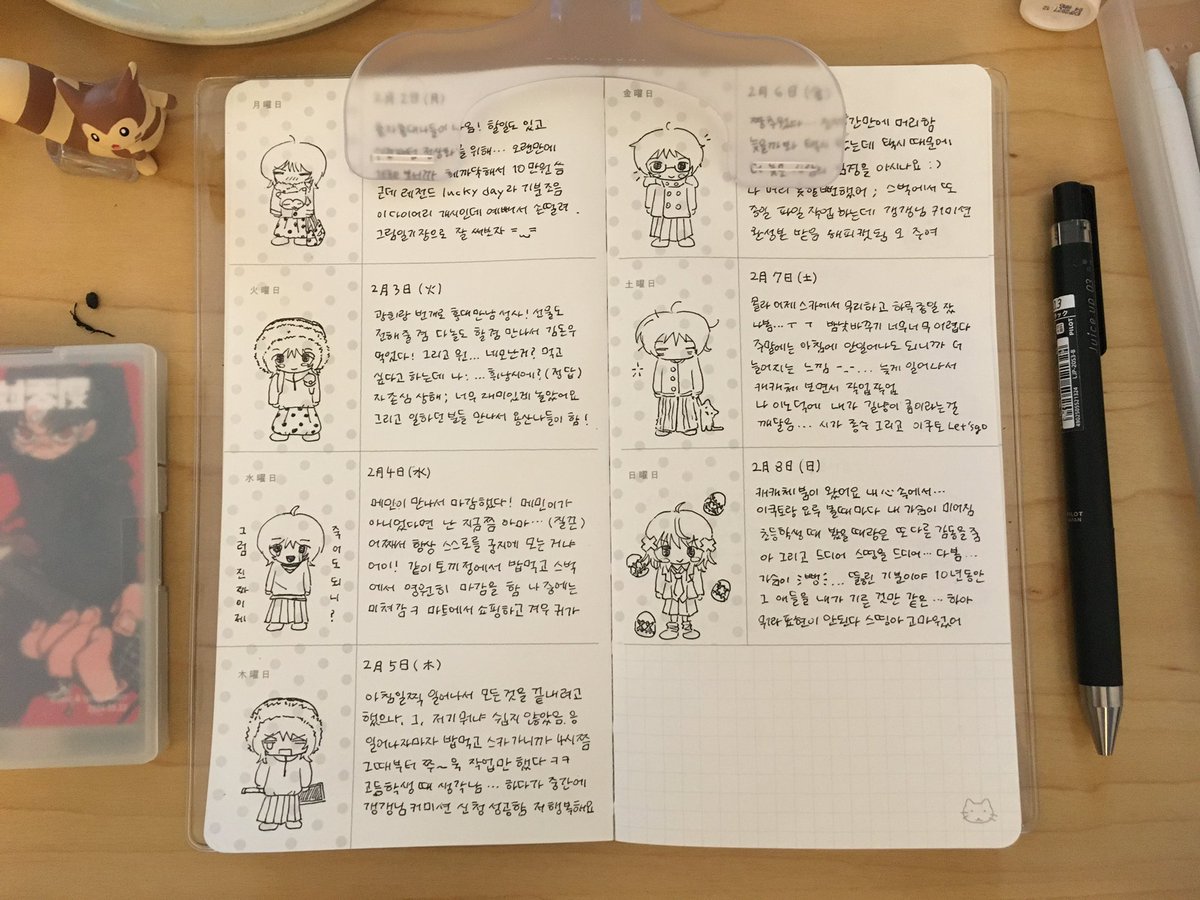 月曜日
2月2日(月)
할일도 있고
위해… 오랜만에
10만원 씀
근데 레전드 lucky day라 기분조음
이 다이어리 개시인데 예뻐서 손떨려.
그림일기장으로 잘 써보자 =ᴗ=
火曜日
2月3日 (火)
광희랑 번개로 홍대만남성사! 선물도
전해줄 겸 다놀도 할 겸 만나서 김돈우
먹었다! 그리고 원… 네모난거? 먹고
싶다고 하는데 나: … 휘낭시에? (정답)
자존심 상해; 너무 재미있게 놀았어요
그리고 일하던 분들 만나서 용산나들이 함!
水曜日
그럼 진짜이제
죽어도 되니?
2月4日(水)
메민이 만나서 마감했다! 메민이가
아니었다면 난 지금쯤 아마… (질끈)
어째서 항상 스스로를 궁지에 모는 거냐
어이! 같이 토끼정에서 밥먹고 스벅
에서 영원히 마감을 함 나중에는
미쳐감ㅋ 마트에서 쇼핑하고 겨우 귀가
木曜日
2月5日(木)
아침일찍 일어나서 모든 것을 끝내려고
했으나, 그, 저기 뭐냐 쉽지 않았음 응
일어나자마자 밥먹고 스카가니까 4시쯤
그때부터 쭈~욱 작업만 했다 ㅋㅋ
고등학생 때 생각남… 하다가 중간에
갱갱님 커미션 신청 성공함 저 행복해요
金曜日
2月6日(金)
간만에 머리함
는데 택시 때문에
심정을 아시나요 :)
나 머리 못할뻔했어; 스벅에서 또
종일 파일 작업 하는데 갱갱님 커미션
완성본 받음 해피캣됨 오 주여
土曜日
2月7日(土)
몰라 어제 스카에서 무리하고 하루종일 잤
나봄…ㅜㅜ 밤낮바꾸기 너무너무 어렵다
주말에는 아침에 안일어나도 되니까 더
늘어지는 느낌 -_-… 늦게 일어나서
캐캐체 보면서 작업작업
나 이노덕에 내가 길냥이 쿰이라는걸
깨달음… 시가 종수 그리고 이쿠토 Let'sgo
日曜日
2月8日(日)
캐캐체붐이 왔어요 내 心 속에서…
이쿠토랑 요루 볼때마다 내 가슴이 미어짐
초등학생때 봤을때랑은 또 다른 감동을 줌
아 그리고 드디어 스띵을 드디어… 다봄…
가슴이 뻥… 뚫린 기분이야 10년동안
그 애들을 내가 기른 것만 같은… 하아
뭐라 표현이 안된다 스띵아 고마웠어
PILOT
JAPAN
juice up 03